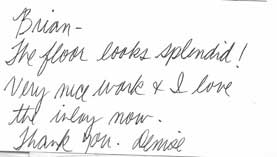 Brian-
The floor looks splendid!
Very nice work & I love
the inlay now.
Thank You. Denise